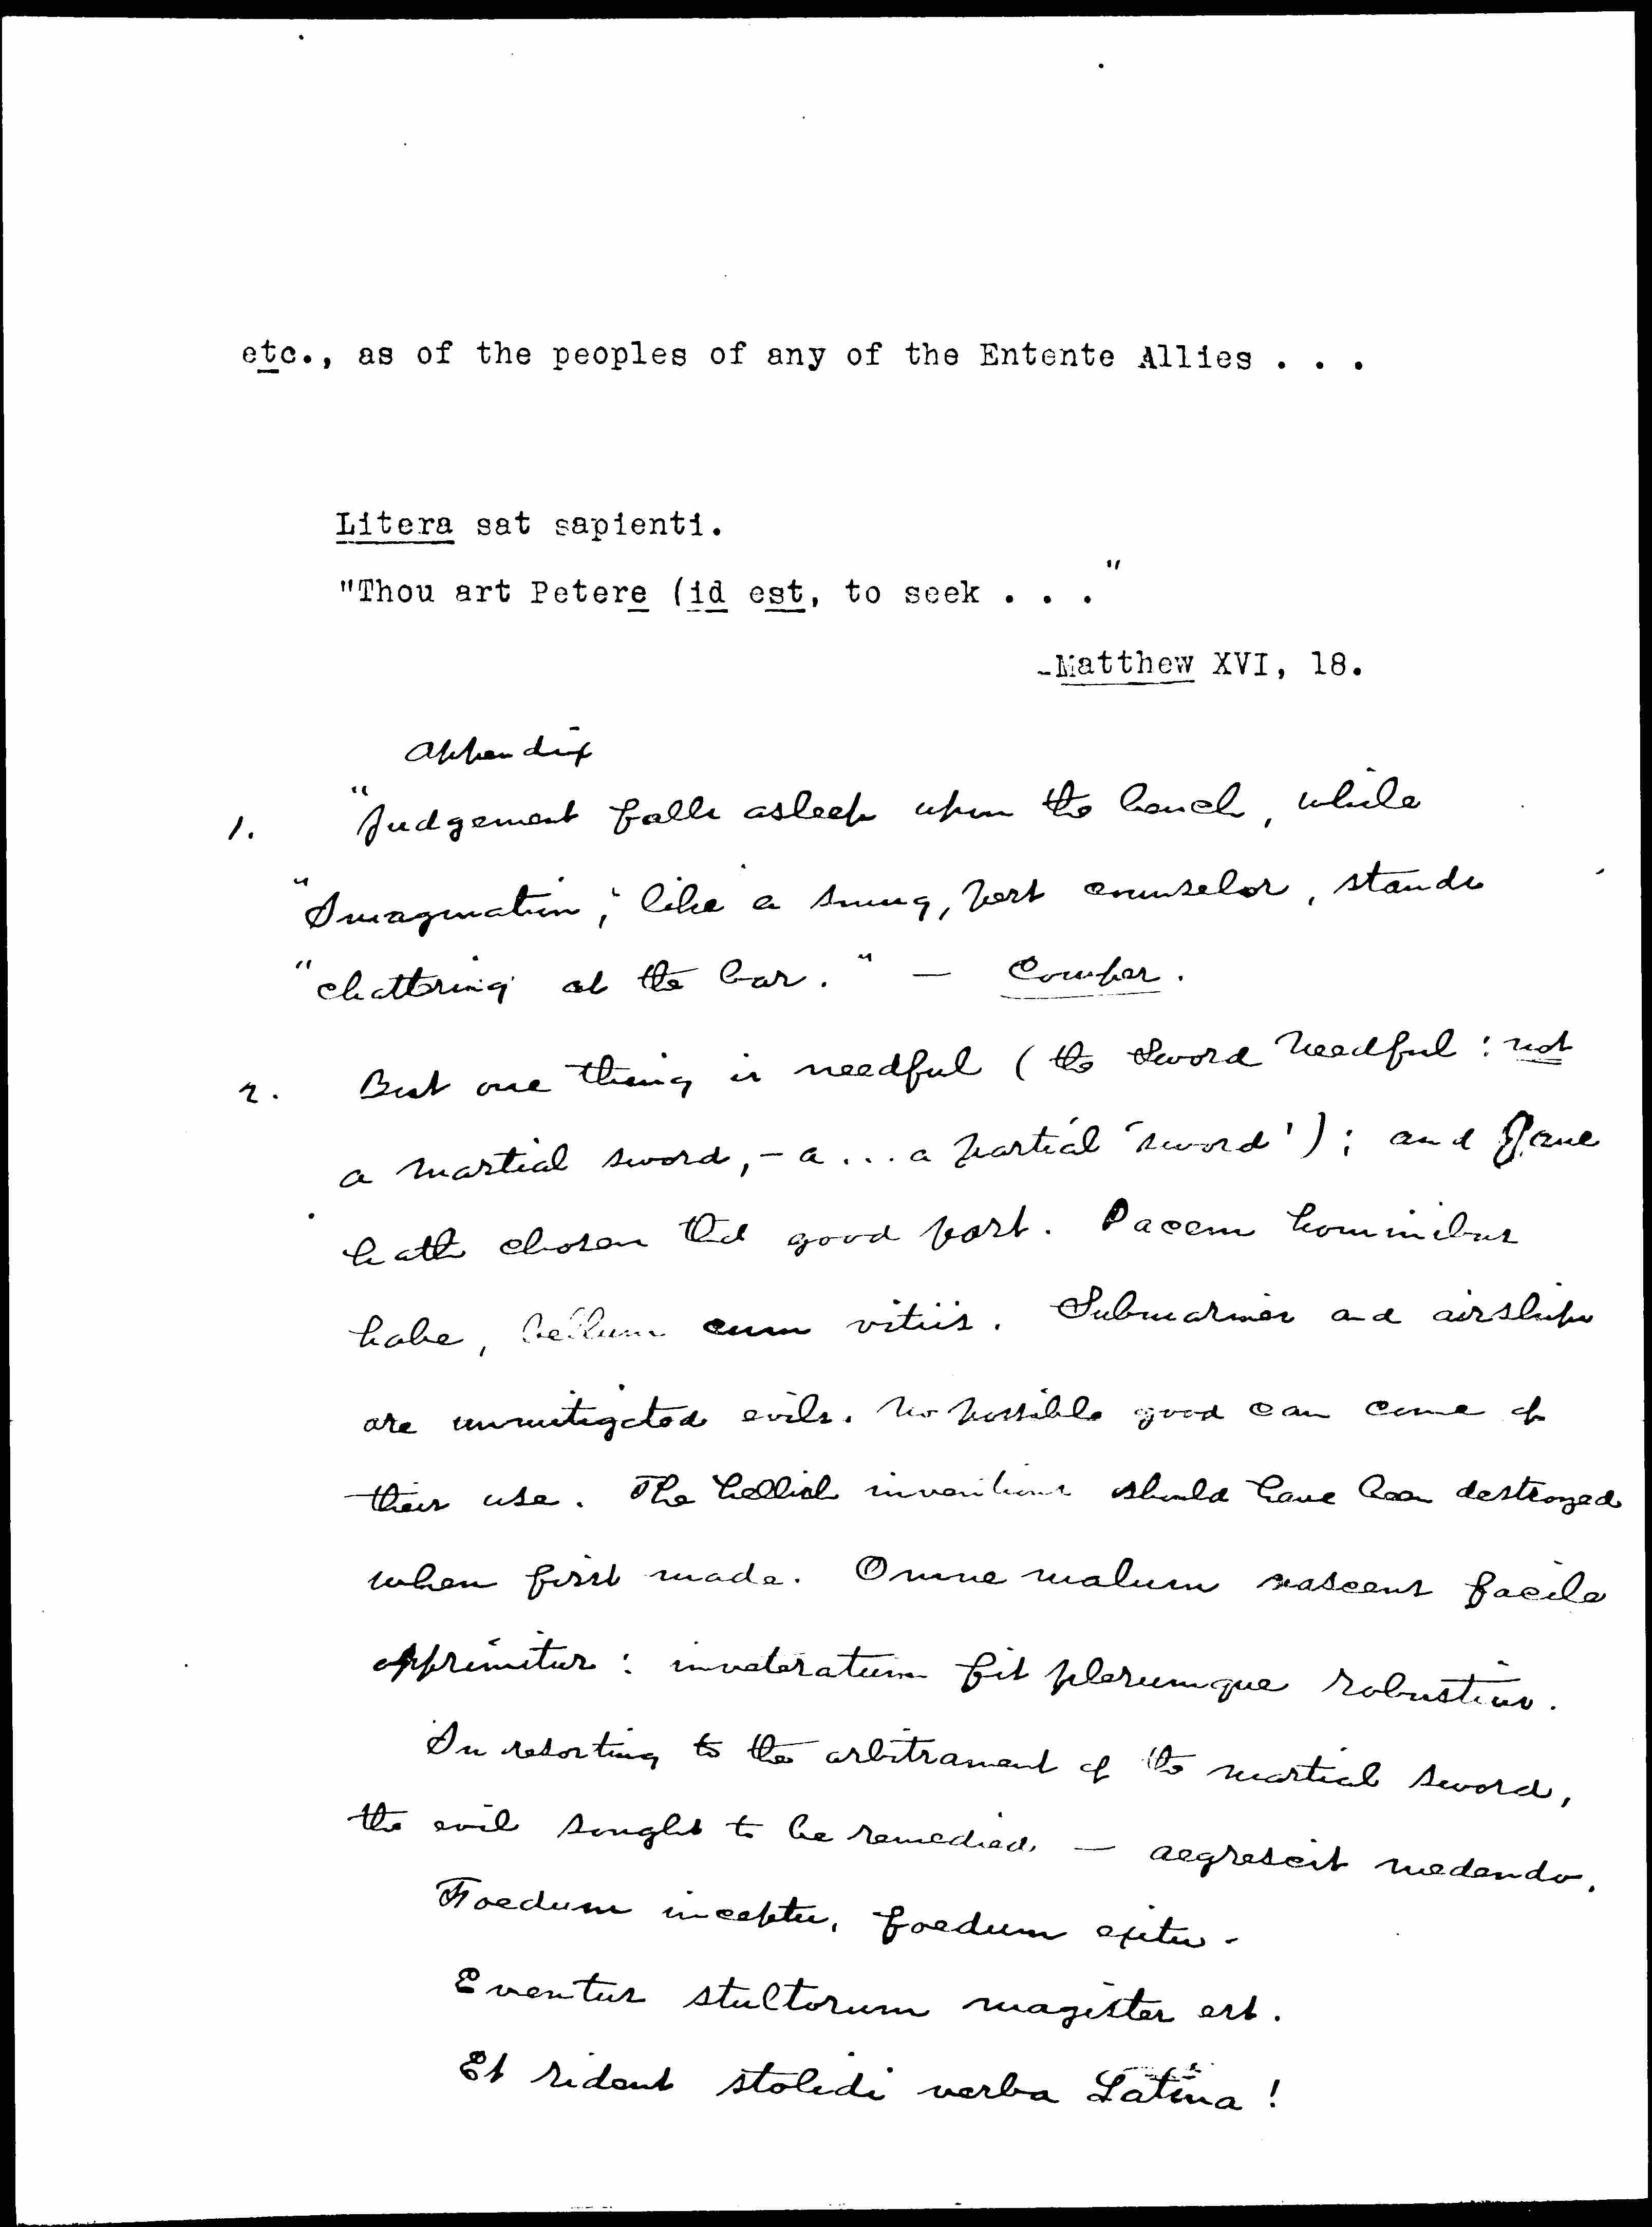 etc., as of the peoples of any of the Entente Allies . . .
Litera sat sapienti.
"Thou art Petere (id est, to seek . . ."
-Matthew XVI, 18.
Appendix
1. "Judgement falls asleep upon the bench, while
"Imagination, like a smug, pert counselor, stands
"chattering at the bar." — Cowper.
2. But one thing is needful (the Sword needful : not
a martial sword, - a ... a partial 'sword') ; and Jane
hath chosen that good part. Pacem hominibus
habe, bellum cum vitiis. Submarines and airships
are unmitigated evils. No possible good can come of
their use. The hellish inventions should have been destroyed
when first made. Omne malum nascens facile
opprimitur : inveteratum fit plerumque robustius.
In resorting to the arbitrament of the martial sword,
the evil sought to be remedied — aegrescit medendo.
Foedum inceptu, foedum exitu -
Eventus stultorum magister est.
Et rident stolidi verba Latina !